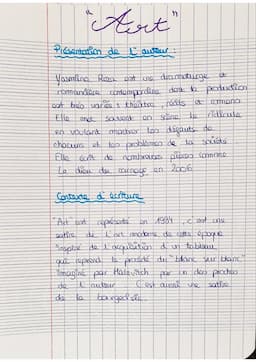 "Art"
Présentation de L'auteur :
Yasmina Reza est une dramaturge et
romancière contemporaine dont la production
est très variée : théâtre, récits et romans
Elle met souvent en scène le ridicule
en voulant montrer les dégauts de
chacuns et les problèmes de la société
Elle écrit de nombreuses pièces comme
Le dieu du carnage en 2006
Contexte d'écriture
"Art" est représenté en 1994, c'est une
satire de L'art moderne de cette époque
Inspiré de l'acquisition d'un tableau
qui reprend le procédé du "blanc sur blanc"
Imaginé par Malévitch par un des proches
de L'auteur C'est aussi une satire
de la bourgeoisie.